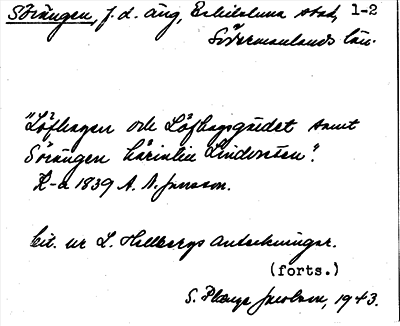 Sörängen, f.d. äng, Eskilstuna stad, 1-2
Södermanlands län.
"Löfhagen och Löfhagsgärdet samt
Sörängen härintill Lindersten".
L-a 1839 A. N. Jonsson.
Cit. ur L. Hellbergs Anteckningar.
(forts.)
S. Jacobson, 1943.